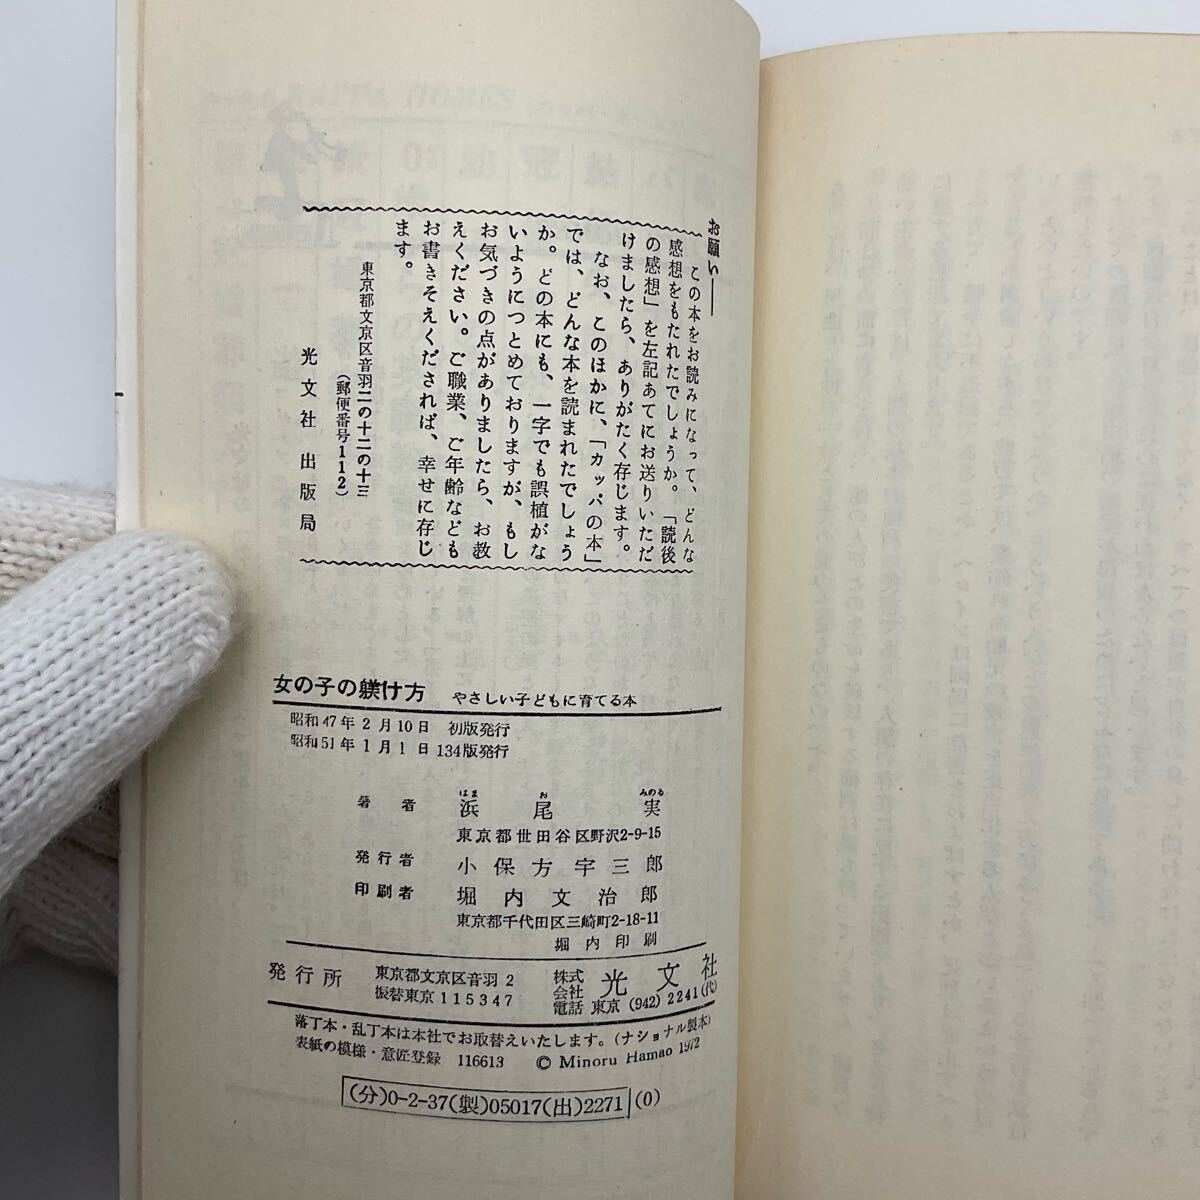 お願い――
この本をお読みになって、どんな
感想をもたれたでしょうか。「読後
の感想」を左記あてにお送りいただ
けましたら、ありがたく存じます。
なお、このほかに、「カッパの本」
では、どんな本を読まれたでしょう
か。どの本にも、一字でも誤植がな
いようにつとめておりますが、もし
お気づきの点がありましたら、お教
えください。ご職業、ご年齢なども
お書きそえくだされば、幸せに存じ
ます。
東京都文京区音羽二の十二の十三
(郵便番号112)
光文社出版局
女の子の躾け方 やさしい子どもに育てる本
昭和47年2月10日 初版発行
昭和51年1月1日 134版発行
はま お みのる
著者 浜尾 実
東京都世田谷区野沢2-9-15
発行者 小保方宇三郎
印刷者 堀内文治郎
東京都千代田区三崎町2-18-11
堀内印刷
発行所 東京都文京区音羽2 株式会社 光文社
振替東京115347 電話 東京(942)2241(代)
落丁本・乱丁本は本社でお取替えいたします。(ナショナル製本)
表紙の模様・意匠登録 116613 © Minoru Hamao 1972
(分)0-2-37(製)05017(出)2271 (0)